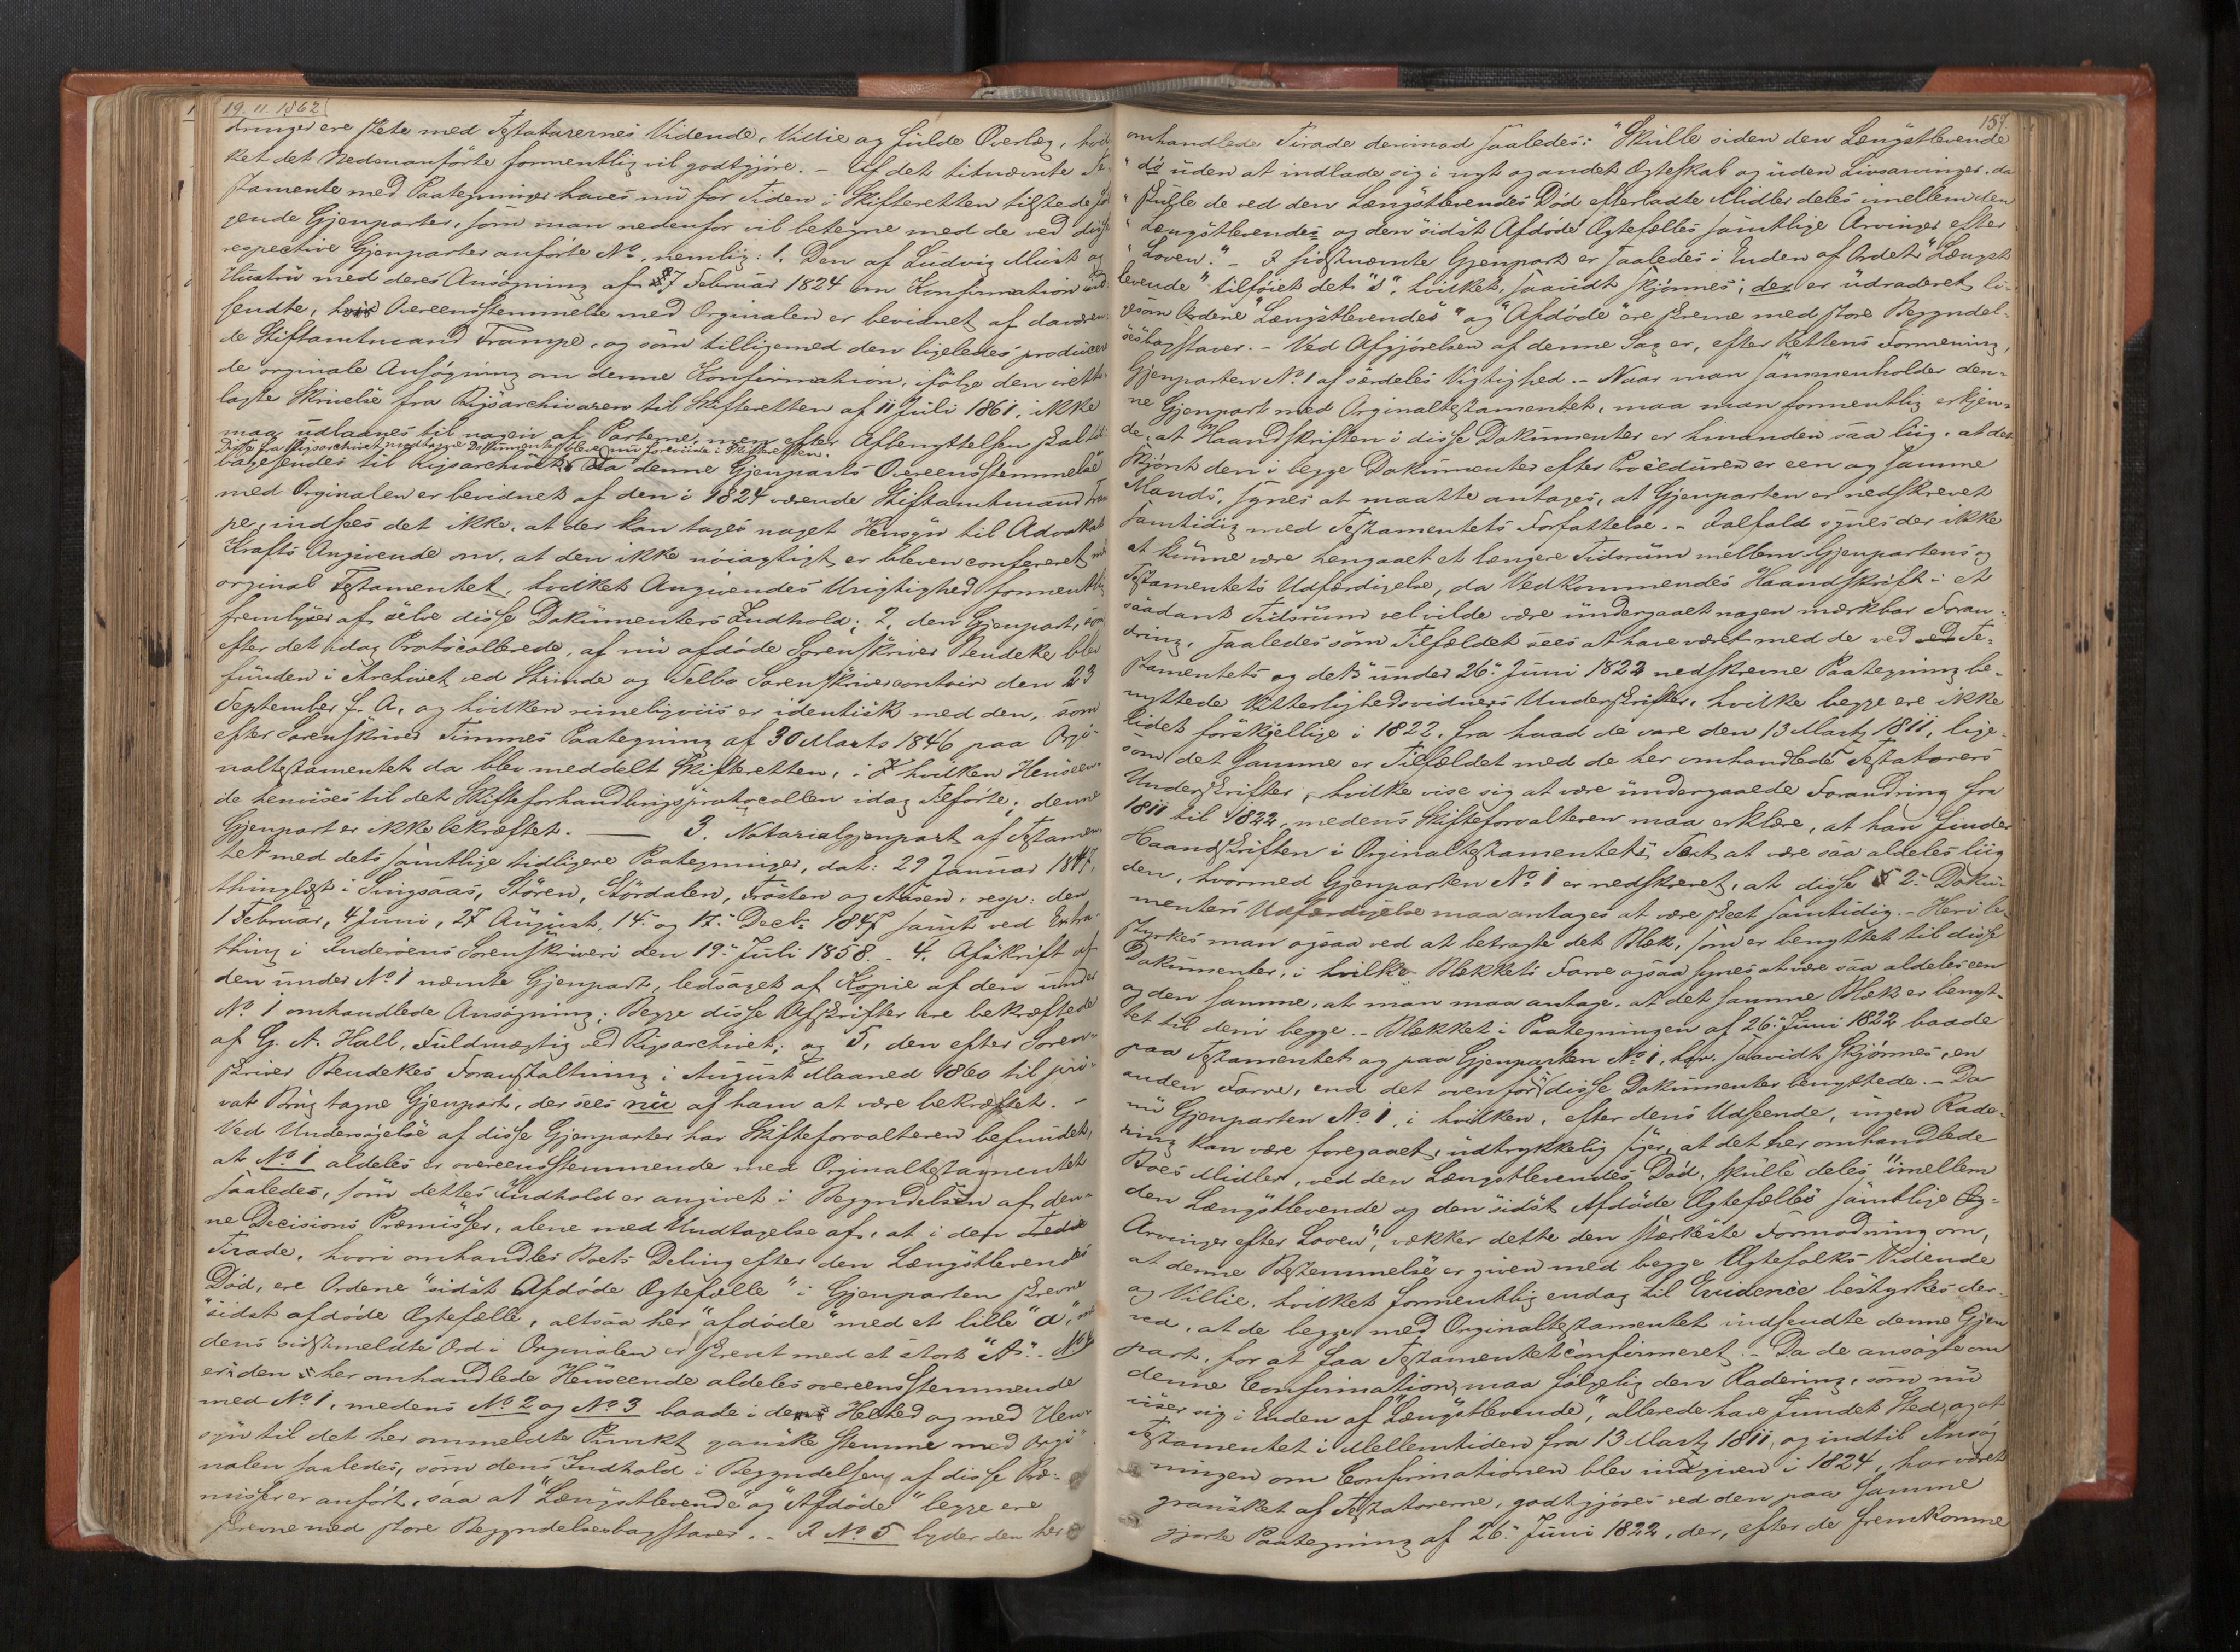 19.11.1862
dringer ere skete med Testatorernes Vidende, Villie og fulde Overlæg, hvil-
ket det Nedenanførte formentlig vil godtgjøre. - Af det titnævnte Te-
stamente med Paategninger haves nu for Tiden i Skifteretten tilstede føl-
gende Gjenparter, som man nedenfor vil betegne med de ved disse
respective Gjenparter anførte No, nemlig: 1, Den af Ludvig Must og
Hustru med deres Ansøgning af 27 Februar 1824 om Konfirmation ind-
sendte, hvis Overeensstemmelse med Orginalen er bevidnet af daværen-
de Stiftamtmand Trampe, og som tilligemed den ligeledes producere-
de orginale Ansøgning om denne Konfirmation, ifølge den irette-
lagte Skrivelse fra Rigsarchivaren til Skifteretten af 11 Juli 1861, ikke
maa udlaanes til nogen af Parterne, men efter Afbenyttelsen skal til-
Disse fra Rigsarchivet modtagne Dokumenter bleve nu foreviste i Skifteretten.
bagesendes til Rigsarchivet. Da denne Gjenparts Overeensstemmelse
med Orginalen er bevidnet af den i 1824 værende Stiftamtmand Tram-
pe, indsees det ikke, at der kan tages noget Hensyn til Advokat
Krafts Angivende om, at den ikke nøiagtigt er bleven confereret med
orginal Testamentet, hvilket Angivendes Urigtighed formentlig
fremlyser af selve disse Dokumenters Indhold; 2, den Gjenpart, som
efter det idag Protocollerede, af nu afdøde Sorenskriver Bendeke blev
funden i Archivet ved Strinde og Selbo Sorenskrivercontoir den 23
September f. A. og hvilken rimeligviis er identisk med den, som
efter Sorenskriver Timmes Paategning af 30 Marts 1846 paa Orgi-
naltestamentet da blev meddelt Skifteretten, i hvilken Henseen-
de henvises til det Skifteforhandlingsprotocollen idag Tilførte; denne
Gjenpart er ikke bekræftet. — 3. Notarialgjenpart af Testamen-
tet med dets samtlige tidligere Paategninger, dat: 29 Januar 1847,
thinglæst i Singsaas, Støren, Størdalen, Frosten og Aasen, resp: den
1 Februar, 4 Juni, 27 August, 14 og 17 Decbr 1847 samt ved Extra-
thing i Inderøens Sorenskriveri den 19 Juli 1858. - 4, Afskrift af
den under No 1 nævnte Gjenpart, ledsaget af Kopie af den under
No 1 omhandlede Ansøgning; Begge disse Afskrifter ere bekræftede
af G. A. Hall, Fuldmægtig ved Rigsarchivet; og 5, den efter Soren-
skriver Bendekes Foranstaltning i August Maaned 1860 til pri-
vat Brug tagne Gjenpart, der sees nu af ham at være bekræftet. -
Ved Undersøgelse af disse Gjenparter har Skifteforvalteren befundet,
at No 1 aldeles er overeensstemmende med Orginaltestamentet
saaledes, som dettes Indhold er angivet i Begyndelsen af den-
ne Decisions Præmisser, alene med Undtagelse af, at i den
Tirade, hvori omhandles Boets Deling efter den Længstlevendes
Død, ere Ordene "sidst Afdøde Ægtefælle" i Gjenparten skrevne
"sidst afdøde Ægtefælle, altsaa her "afdøde" med et lille "a",
dens sidstmeldte Ord i Orginalen er skrevet med et stort "A". - No 4
er i den her omhandlede Henseende aldeles overeensstemmende
med No 1, medens No 2 og No 3 baade i dens Helhed og med Hen-
syn til det her ommeldte Punkt ganske stemme med Orgi-
nalen saaledes, som dens Indhold i Begyndelsen af disse Præ-
misser er anført, saa at "Længstlevende" og "Afdøde" begge ere
skrevne med store Begyndelsesbogstaver. - I No 5 lyder den her
157.
omhandlede Tirade derimod saaledes: "Skulle siden den Længstlevende
"dø uden at indlade sig i nyt og andet Ægteskab og uden Livsarvinger, da
"skulle de ved den Længstlevendes Død efterladte Midler deles imellem den
"Længstlevendes og den sidst Afdøde Ægtefælles samtlige Arvinger efter
"Loven." - I sidstnævnte Gjenpart er saaledes i Enden af Ordet "Længst-
levende" tilføiet det "s", hvilket, saavidt skjønnes, der er udraderet, li-
gesom Ordene "Længstlevendes" og "Afdøde" ere skrevne med store Begyndel-
sesbogstaver. - Ved Afgjørelsen af denne Sag er, efter Rettens Formening,
Gjenparten No 1 af særdeles Vigtighed. - Naar man sammenholder den-
ne Gjenpart med Orginaltestamentet, maa man formentlig erkjen-
de, at Haandskriften i disse Dokumenter er hinanden saa liig, at det
skjønt den i begge Dokumenter efter Proceduren er een og samme
Mands, synes at maatte antages, at Gjenparten er nedskrevet
samtidig med Testamentets Forfattelse. - Ialfald synes der ikke
at kunne være hengaaet et længere Tidsrum mellem Gjenpartens og
Testamentets Udfærdigelse, da Vedkommendes Haandskrift i et
saadant Tidsrum vel vilde være undergaaet nogen mærkbar Foran-
dring, saaledes som Tilfældet sees at have været med de ved Te-
stamentets og dets under 26 Juni 1822 nedskrevne Paategning be-
nyttede Vitterlighedsvidners Underskrifter, hvilke begge ere ikke
lidet forskjellige i 1822, fra hvad de vare den 13 Marts 1811, lige-
som det samme er Tilfældet med de her omhandlede Testatorers
Underskrifter, hvilke vise sig at være undergaaede Forandring fra
1811 til 1822, medens Skifteforvalteren maa erklære, at han finder
Haandskriften i Orginaltestamentets Text at være saa aldeles liig
den, hvormed Gjenparten No 1 er nedskrevet, at disse 2 Doku-
menters Udfærdigelse maa antages at være skeet samtidig. - Heri be-
styrkes man ogsaa ved at betragte det Blæk, som er benyttet til disse
Dokumenter, i hvilke Blækkets Farve ogsaa synes at være saa aldeles een
og den samme, at man maa antage, at det samme Blæk er benyt-
tet til dem begge. - Blækket i Paategningen af 26 Juni 1822 baade
paa Testamentet og paa Gjenparten No 1, har, saavidt skjønnes, en
anden Farve, end det ovenfor i disse Dokumenter benyttede. - Da
nu Gjenparten No 1, i hvilken, efter dens Udseende, ingen Rade-
ring kan være foregaaet, udtrykkelig siger, at det her omhandlede
Boes Midler, ved den Længstlevendes Død, skulle deles "imellem
den Længstlevende og den sidst Afdøde Ægtefælles samtlige
Arvinger efter Loven", vækker dette den stærkeste Formodning om,
at denne Bestemmelse er given med begge Ægtefolks Vidende
og Villie, hvilket formentlig endog til Evidence bestyrkes der-
ved, at de begge med Orginaltestamentet indsendte denne Gjen-
part, for at faa Testamentet confirmeret. - Da de ansøgte om
denne Confirmation, maa følgelig den Radering, som nu
viser sig i Enden af "Længstlevende", allerede have fundet Sted, og at
Testamentet i Mellemtiden fra 13 Marts 1811, og indtil Ansøg-
ningen om Confirmationen blev indgiven i 1824, har været
gransket af Testatorerne, godtgjøres ved den paa samme
gjorte Paategning af 26 Juni 1822, der, efter de fremkomne